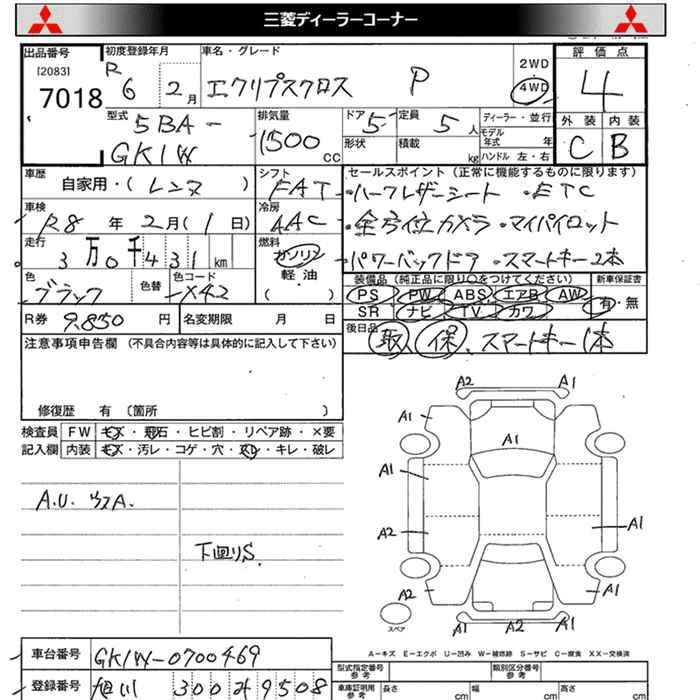 三菱ディーラーコーナー
出品番号 初度登録年月 車名・グレード 評価点
[2083] 7018 R 6 2月 エクリプスクロス P 2WD 4WD 4
型式 5BA- GK1W 排気量 1500 cc ドア 5 定員 5人 ディーラー・並行 外装 内装
形状 積載 kg モデル年式 年 ハンドル 左・右 C B
車歴 自家用・(レンヌ) シフト FAT セールスポイント (正常に機能するものに限ります)
・ハーフレザーシート ・ETC
車検 R8年 2月(1日) 冷房 AAC ・全方位カメラ ・マイパイロット
走行 3万0千431km 燃料 ガソリン 軽油 ( ) ・パワーバックドア ・スマートキー2本
色 ブラック 色替 色コード X42 装備品 (純正品に限り〇をつけてください) 新車保証書
PS PW ABS エアB AW 有・無
SR ナビ TV カワ
R券 9,850円 名変期限 月 日 後日品 取、保、スマートキー1本
注意事項申告欄 (不具合内容等は具体的に記入して下さい)
修復歴 有 (箇所 )
検査員 FW キズ・飛石・ヒビ割・リペア跡・×要
記入欄 内装 キズ・汚レ・コゲ・穴・スレ・キレ・破レ
A.U. ウスA.
下回りS.
A2 A1
A1 A1 A1
A1 A1
A2 A1
A2 A1
A1 A2 A1
スペア
A－キズ E－エクボ U－凹み W－補修跡 S－サビ C－腐食 XX－交換済
車台番号 GK1W-0700469 型式指定番号 参考 類別区分番号 参考
登録番号 旭川 300 ヰ9508 車庫証明用 参考 長さ cm 幅 cm 高さ cm